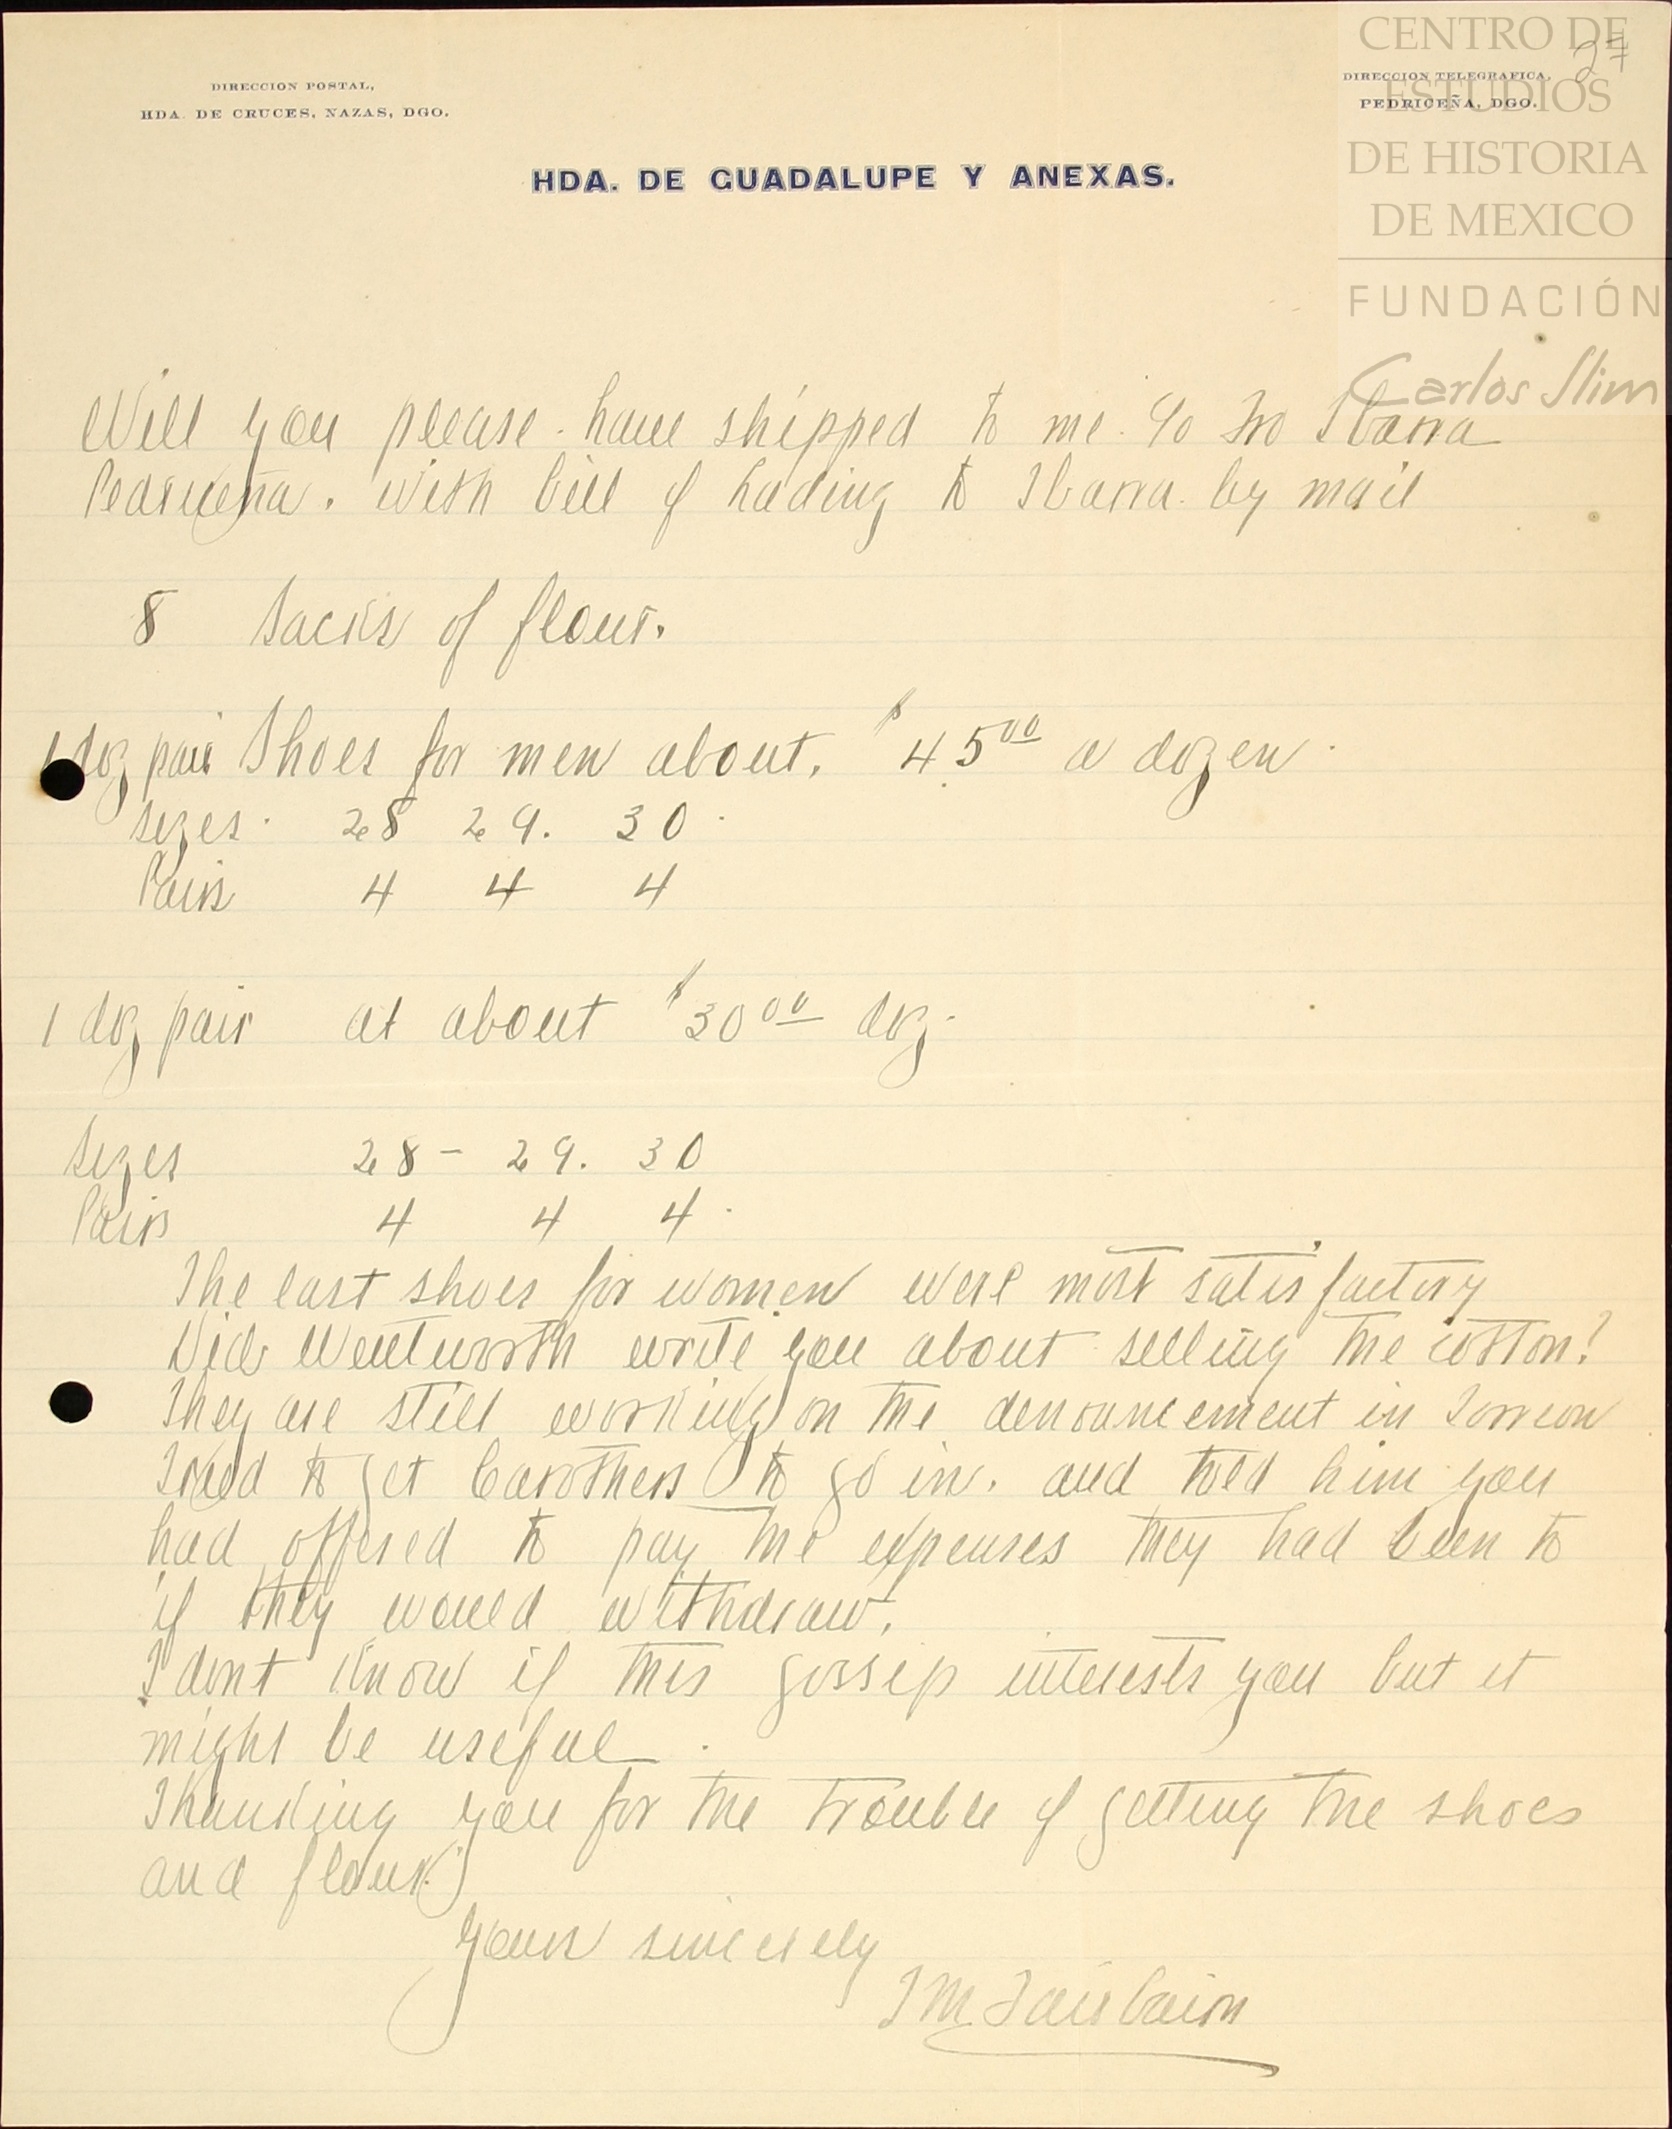 CENTRO DE
ESTUDIOS
DE HISTORIA
DE MEXICO
FUNDACIÓN
Carlos Slim
27
DIRECCION POSTAL,
HDA. DE CRUCES, NAZAS, DGO.
DIRECCION TELEGRAFICA,
PEDRICEÑA, DGO.
HDA. DE GUADALUPE Y ANEXAS.
Will you please have shipped to me c/o Fro Ibarra
Pedriceña. With bill of lading to Ibarra by mail
8 sacks of flour.
1 doz pair Shoes for men about. $45 00 a dozen.
sizes. 28 29. 30.
Pairs 4 4 4
1 doz pair at about $30 00 doz.
Sizes 28 - 29. 30
Pairs 4 4 4.
The last shoes for women were most satisfactory
Did Wentworth write you about selling the cotton?
They are still working on the denouncement in Torreon
I tried to get Carothers to go in. and told him you
had offered to pay the expenses they had been to
if they would withdraw.
I dont know if this gossip interests you but it
might be useful.
Thanking you for the trouble of getting the shoes
and flour.
Yours sincerely
J M Fairbairn